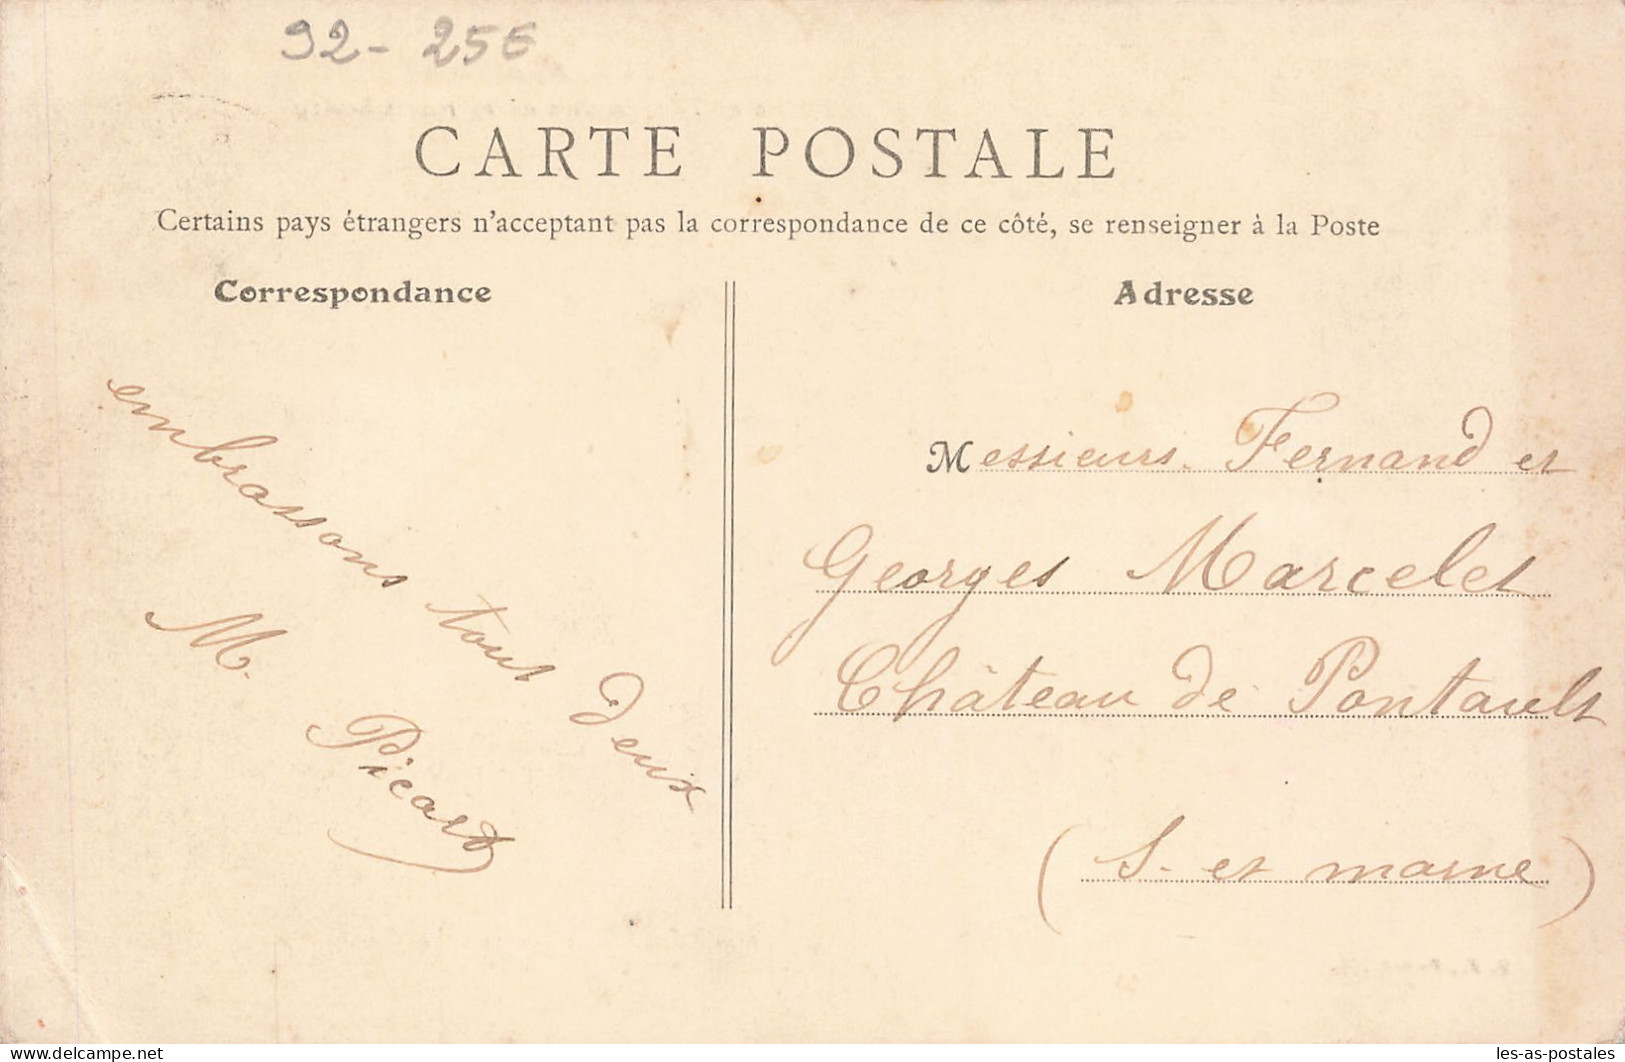 92- 25€
CARTE POSTALE
Certains pays étrangers n'acceptant pas la correspondance de ce côté, se renseigner à la Poste
Correspondance
embrassons tout deux
M. Picard
Adresse
Messieurs Fernand et
Georges Marcelet
Château de Pontault
(S. et marne)
delcampe.net
les-as-postales